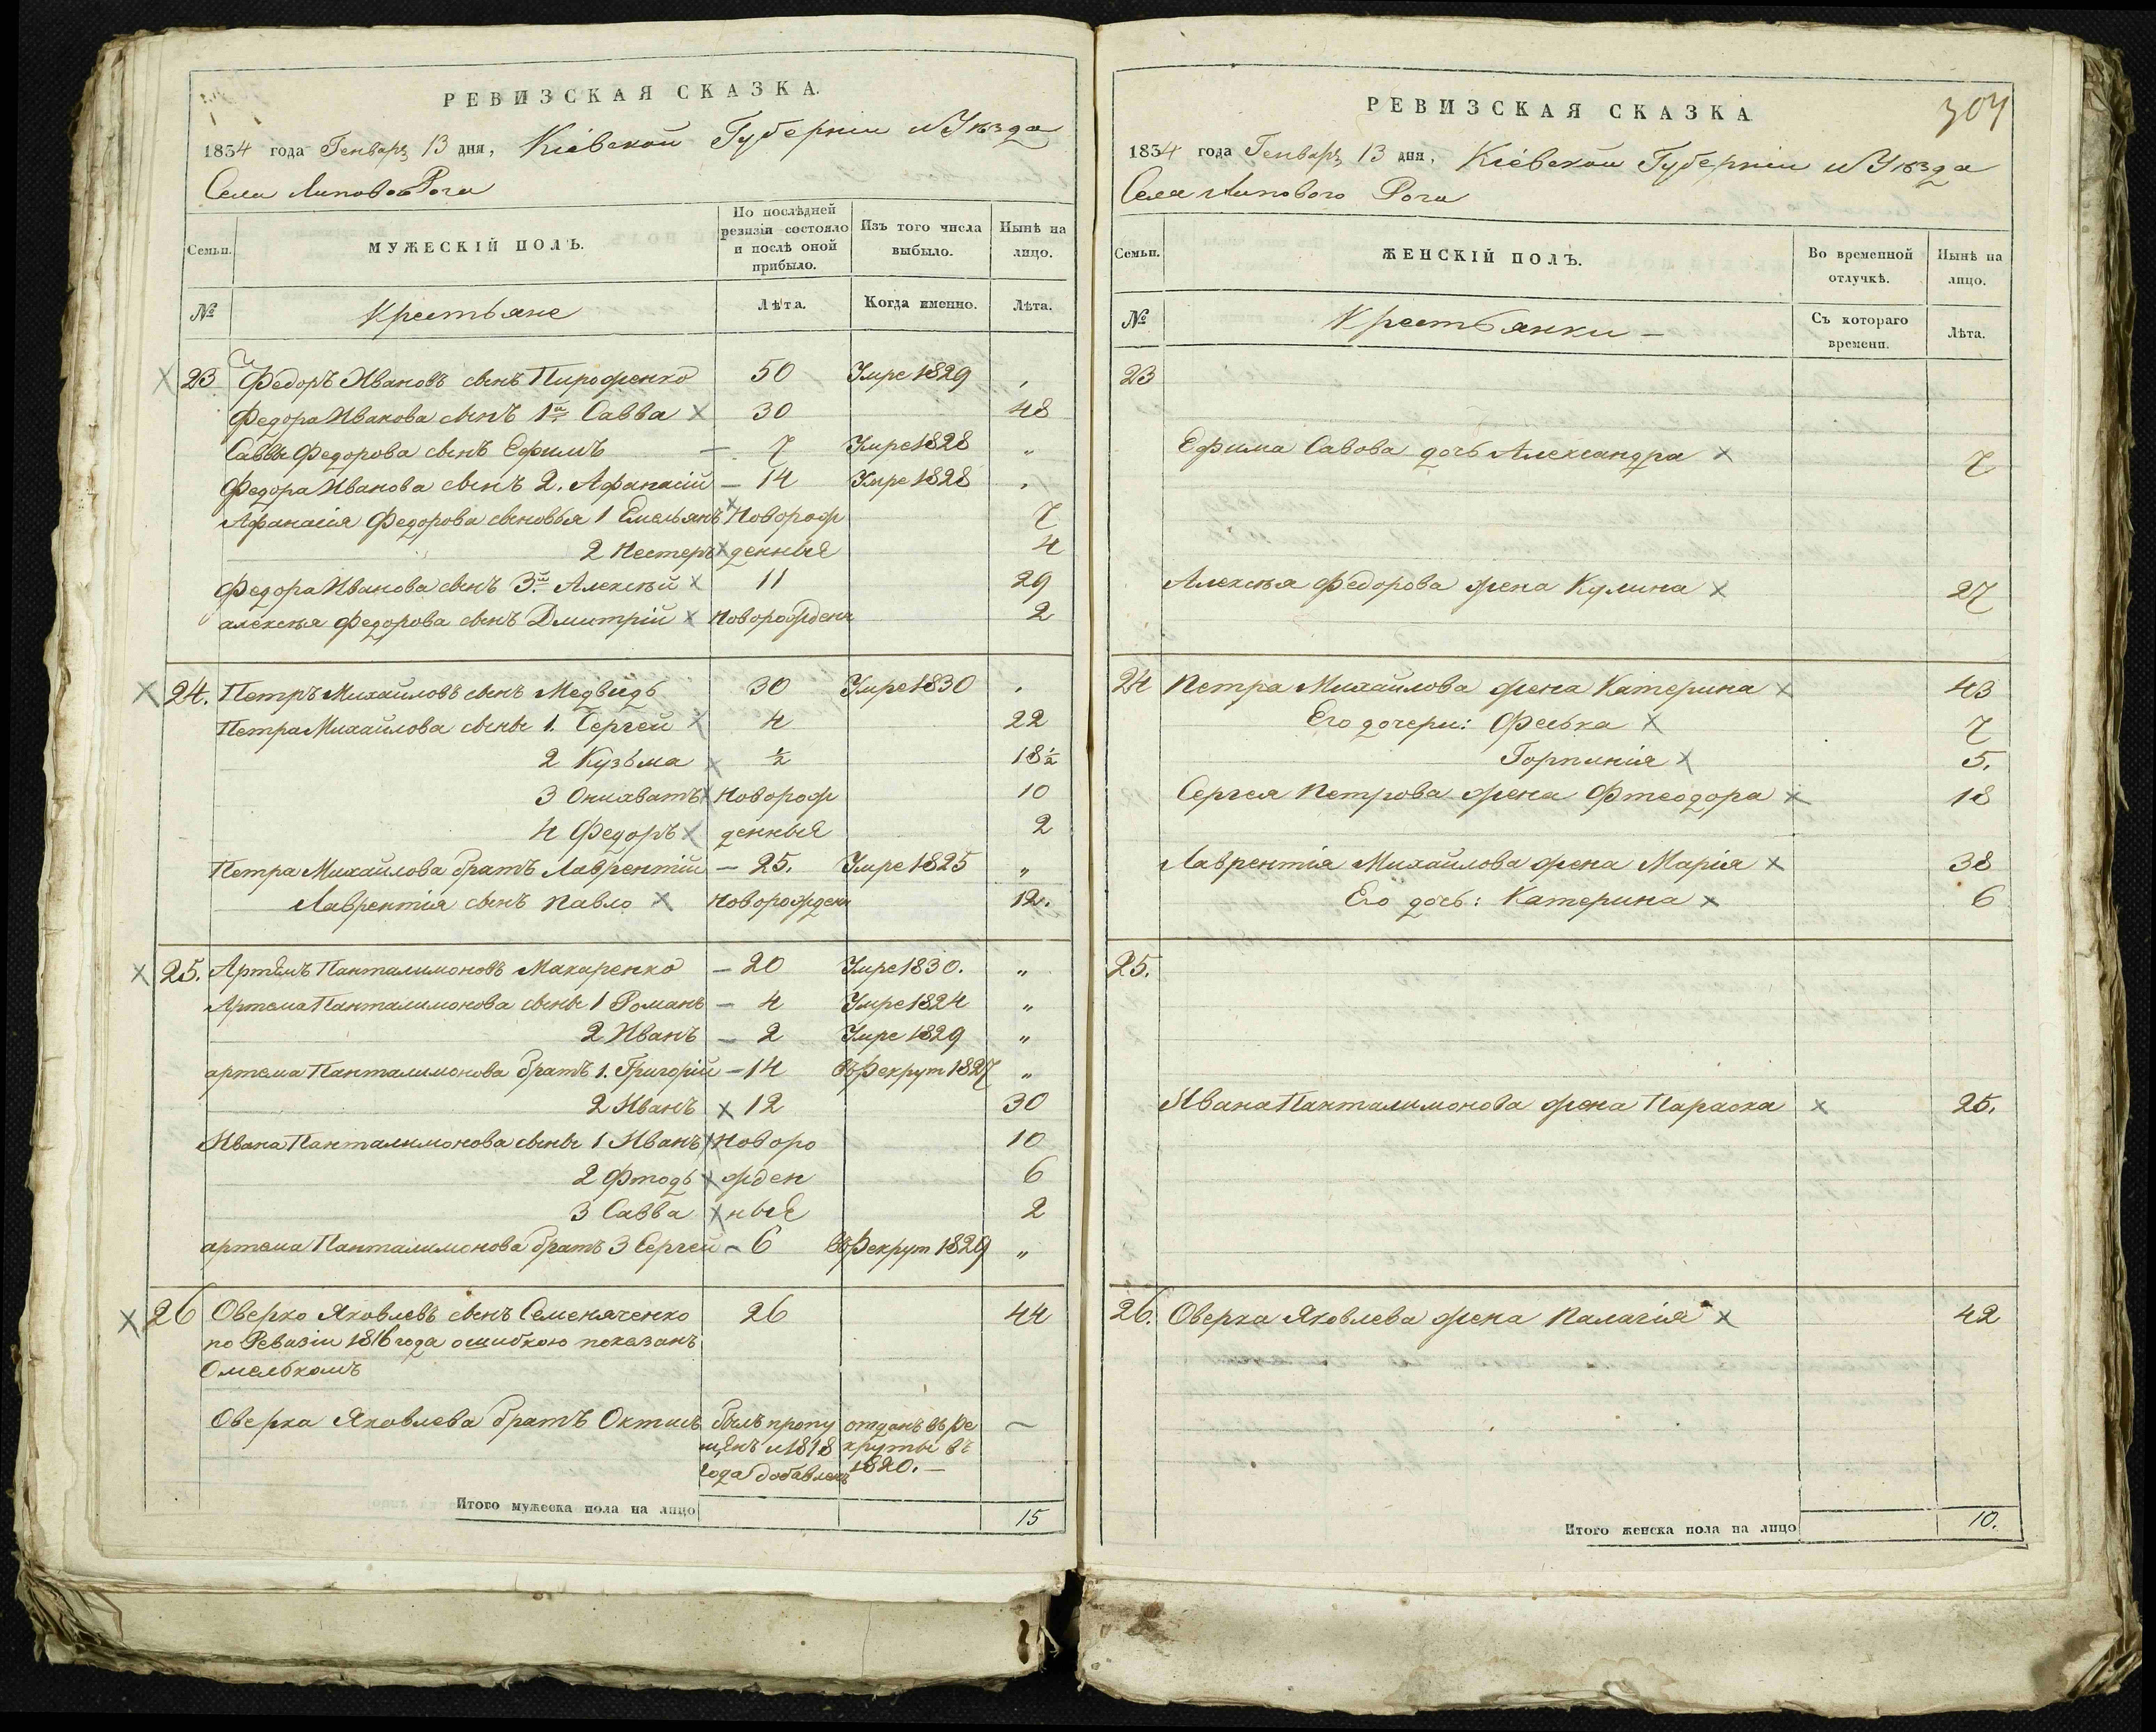 РЕВИЗСКАЯ СКАЗКА.
1834 года Генваря 13 дня, Кіевской Губерніи и Уѣзда
Села Липового Рога
Семьи.
МУЖЕСКІЙ ПОЛЪ.
По послѣдней ревизіи состояло и послѣ оной прибыло.
Изъ того числа выбыло.
Нынѣ на лицо.
№
Крестьяне
Лѣта.
Когда именно.
Лѣта.
23 Федоръ Ивановъ сынъ Пирофенко 50 Умре 1829 ,
Федора Иванова сынъ 1й Савва x 30 48
Саввы Федорова сынъ Ефимъ — 7 Умре 1828 „
Федора Иванова сынъ 2. Афанасій — 14 Умре 1828 ,
Афанасія Федорова сыновья 1 Емельянъ x Новорож 7
2 Нестеръ x денныя 4
Федора Иванова сынъ 3й Алексѣй x 11 29
алексѣя Федорова сынъ Дмитрій x новорожден 2
x 24. Петръ Михайловъ сынъ Медвидь 30 Умре 1830 ,
Петра Михайлова сыны 1. Сергей x 4 22
2 Кузьма x ½ 18½
3 x Новорож 10
4 Федоръ x денныя 2
Петра Михайлова братъ Лаврентій — 25. Умре 1825 „
Лаврентія сынъ Павло x новорожден 12.
x 25. Артемъ Панталимоновъ Макаренко — 20 Умре 1830. „
Артема Панталимонова сыны 1 Романъ — 4 Умре 1824 „
2 Иванъ — 2 Умре 1829 „
артема Панталимонова братъ 1. Григорій — 14 въ Рекрут 1827 „
2 Иванъ x 12 30
Ивана Панталимонова сыны 1 Иванъ x новоро 10
2 Фтодь x жден 6
3 Савва x ныя 2
артема Панталимонова братъ 3 Сергей — 6 въ Рекрут 1829 „
x 26 Оверко Яковлевъ сынъ Семеняченко 26 44
по Ревизіи 1816 года ошибкою показанъ
Омелькомъ
Оверка Яковлева братъ былъ пропу отданъ въ Ре —
щенъ и 1818 круты въ
года добавленъ 1820. —
Итого мужеска пола на лицо 15
РЕВИЗСКАЯ СКАЗКА
304
1834 года Генваря 13 дня, Кіевской Губерніи и Уѣзда
Села Липового Рога
Семьи.
ЖЕНСКІЙ ПОЛЪ.
Во временной отлучкѣ.
Нынѣ на лицо.
№
Крестьянки —
Съ котораго времени.
Лѣта.
23
Ефима Савова дочь Александра x 7
Алексѣя Федорова жена Кулина x 27
24 Петра Михайлова жена Катерина x 43
Его дочери: Феська x 7
Горпинія x 5.
Сергея Петрова жена Фтеодора x 18
Лаврентія Михайлова жена Марія x 38
Его дочь: Катерина x 6
25.
Ивана Панталимонова жена Параска x 25.
26. Оверка Яковлева жена Палагія x 42
Итого женска пола на лицо 10.